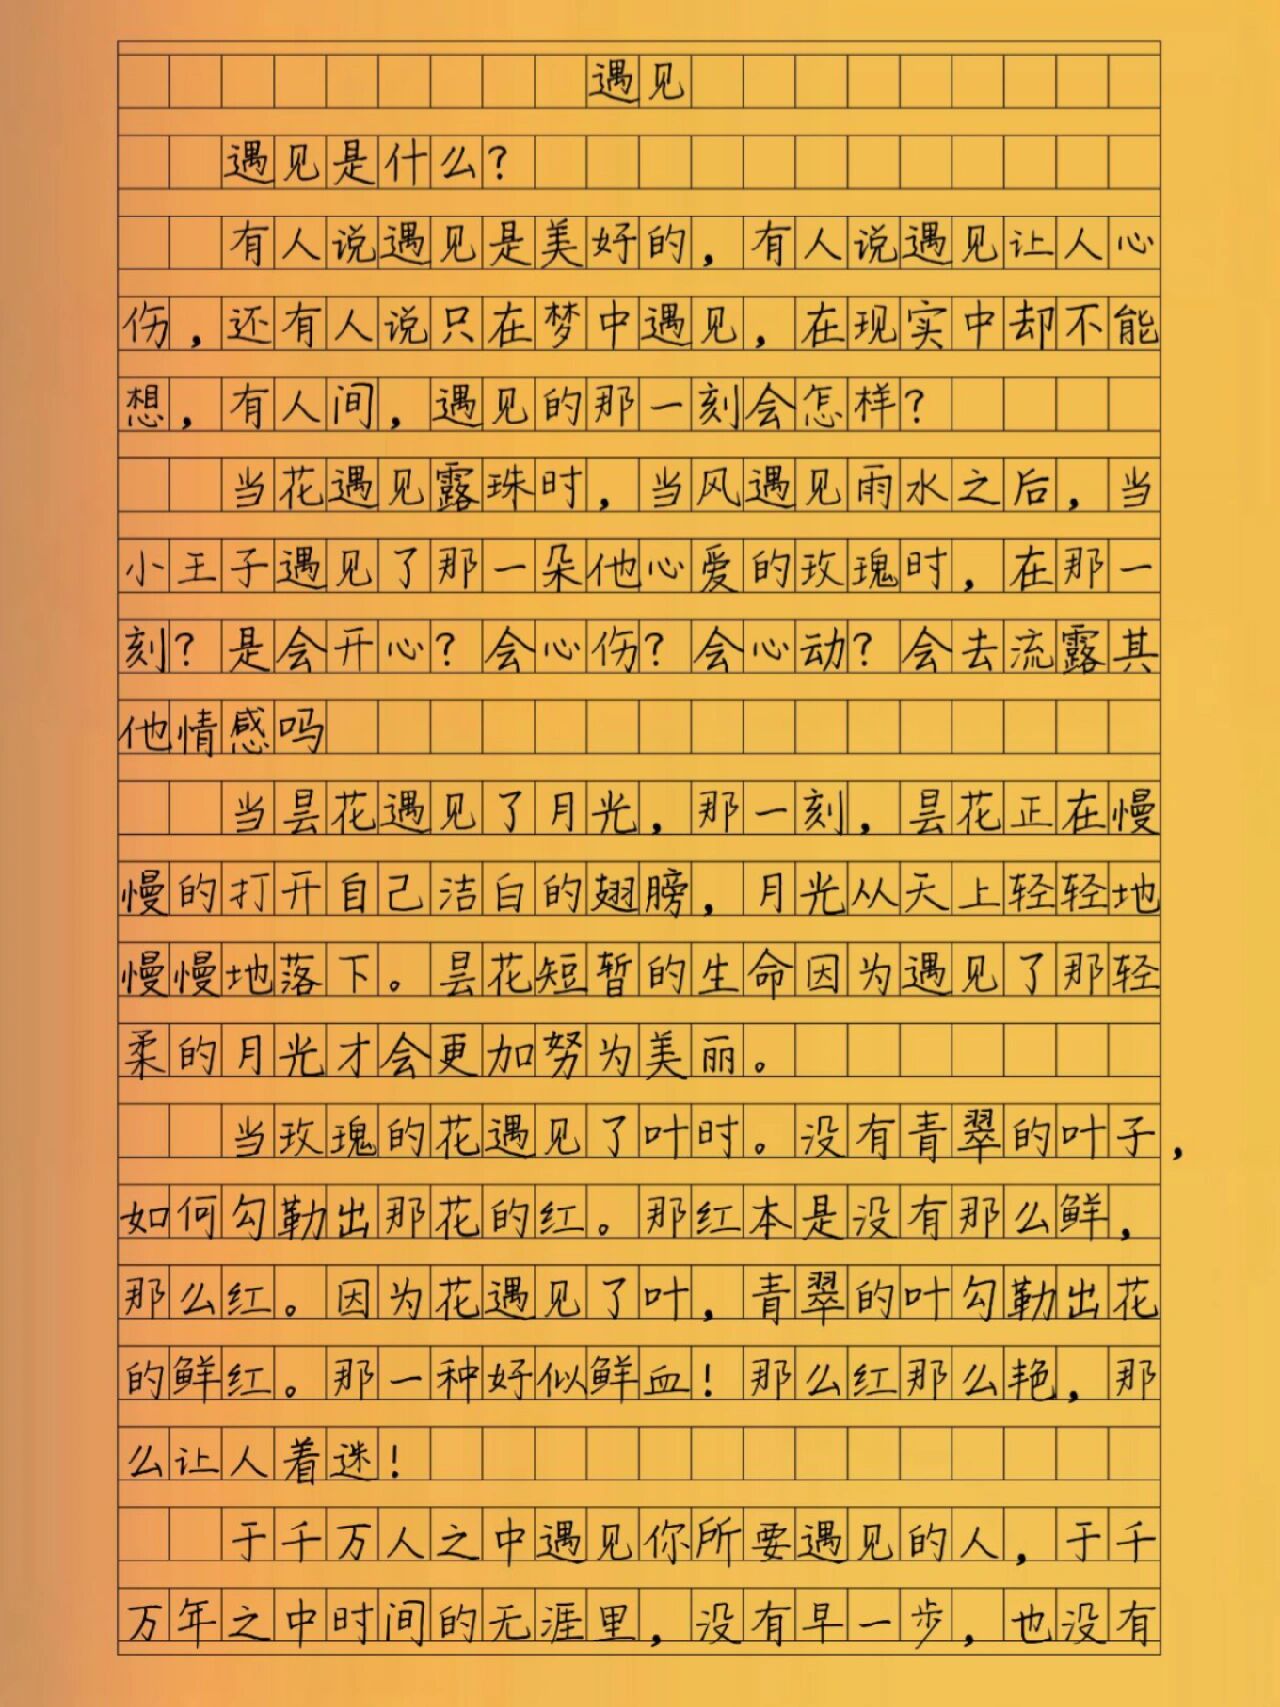 遇见
遇见是什么？
有人说遇见是美好的，有人说遇见让人心
伤，还有人说只在梦中遇见，在现实中却不能
想，有人间，遇见的那一刻会怎样？
当花遇见露珠时，当风遇见雨水之后，当
小王子遇见了那一朵他心爱的玫瑰时，在那一
刻？是会开心？会心伤？会心动？会去流露其
他情感吗
当昙花遇见了月光，那一刻，昙花正在慢
慢的打开自己洁白的翅膀，月光从天上轻轻地
慢慢地落下。昙花短暂的生命因为遇见了那轻
柔的月光才会更加努为美丽。
当玫瑰的花遇见了叶时。没有青翠的叶子，
如何勾勒出那花的红。那红本是没有那么鲜，
那么红。因为花遇见了叶，青翠的叶勾勒出花
的鲜红。那一种好似鲜血！那么红那么艳，那
么让人着迷！
于千万人之中遇见你所要遇见的人，于千
万年之中时间的无涯里，没有早一步，也没有